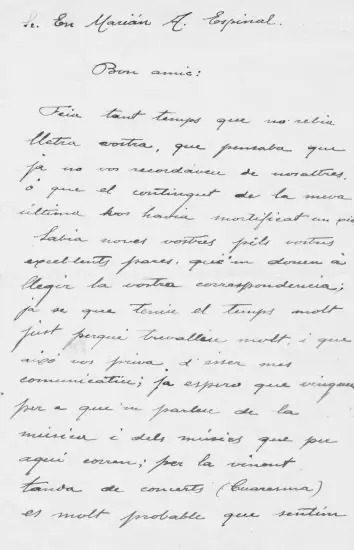 Sr. En Marián A. Espinal.
Bon amic:
Feia tant temps que no rebia
lletra vostra, que pensaba que
ja no vos recordaveu de nosaltres,
o que el contingut de la meva
última vos havia mortificat un
Sabia noves vostres pels vostres
excellents pares, que'm donen á
llegir la vostra correspondencia;
ja se que teniu el temps molt
just perque trevalleu molt, i que
això vos priva d'ésser mes
comunicatiu; ja espero que vingueu
per a que'm parleu de la
música i dels músics que per
aquí corren; per la vinent
tanda de concerts (Cuaresma)
es molt probable que sentim